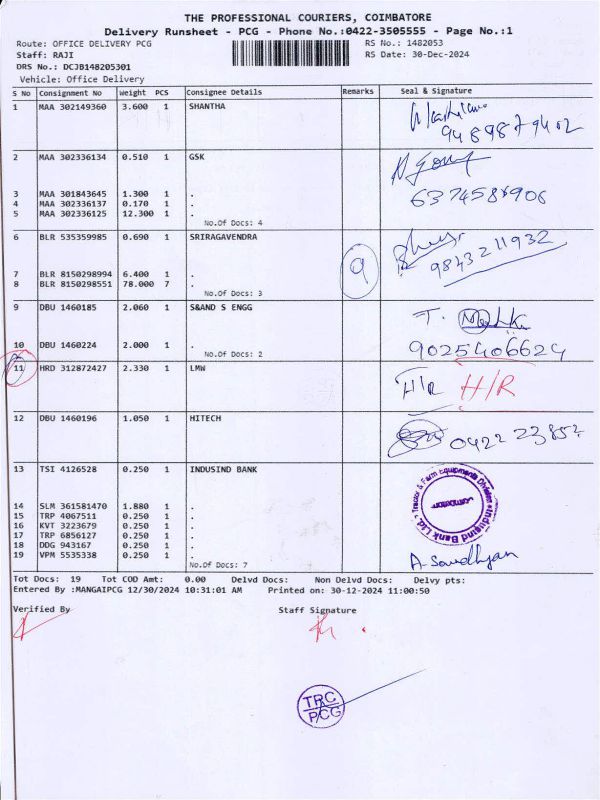 THE PROFESSIONAL COURIERS, COIMBATORE
Delivery Runsheet - PCG - Phone No.:0422-3505555 - Page No.:1
Route: OFFICE DELIVERY PCG RS No.: 1482053
Staff: RAJI RS Date: 30-Dec-2024
DRS No.: DCJB148205301
Vehicle: Office Delivery
S No Consignment No Weight PCS Consignee Details Remarks Seal & Signature
1 MAA 302149360 3.600 1 SHANTHA
2 MAA 302336134 0.510 1 GSK
3 MAA 301843645 1.300 1 .
4 MAA 302336137 0.170 1 .
5 MAA 302336125 12.300 1 .
No.Of Docs: 4
6 BLR 535359985 0.690 1 SRIRAGAVENDRA
9843211932
9
7 BLR 8150298994 6.400 1 .
8 BLR 8150298551 78.000 7 .
No.Of Docs: 3
9 DBU 1460185 2.060 1 S&AND S ENGG
10 DBU 1460224 2.000 1 .
9025406624
No.Of Docs: 2
11 HRD 312872427 2.330 1 LMW
H/R H/R
12 DBU 1460196 1.050 1 HITECH
13 TSI 4126528 0.250 1 INDUSIND BANK
Tractor & Farm Equipments Division
IndusInd Bank Ltd.
Coimbatore
14 SLM 361581470 1.880 1 .
15 TRP 4067511 0.250 1 .
16 KVT 3223679 0.250 1 .
17 TRP 6856127 0.250 1 .
18 DDG 943167 0.250 1 .
19 VPM 5535338 0.250 1 .
No.Of Docs: 7
Tot Docs: 19 Tot COD Amt: 0.00 Delvd Docs: Non Delvd Docs: Delvy pts:
Entered By :MANGAIPCG 12/30/2024 10:31:01 AM Printed on: 30-12-2024 11:00:50
Verified By Staff Signature
TRC
PCG